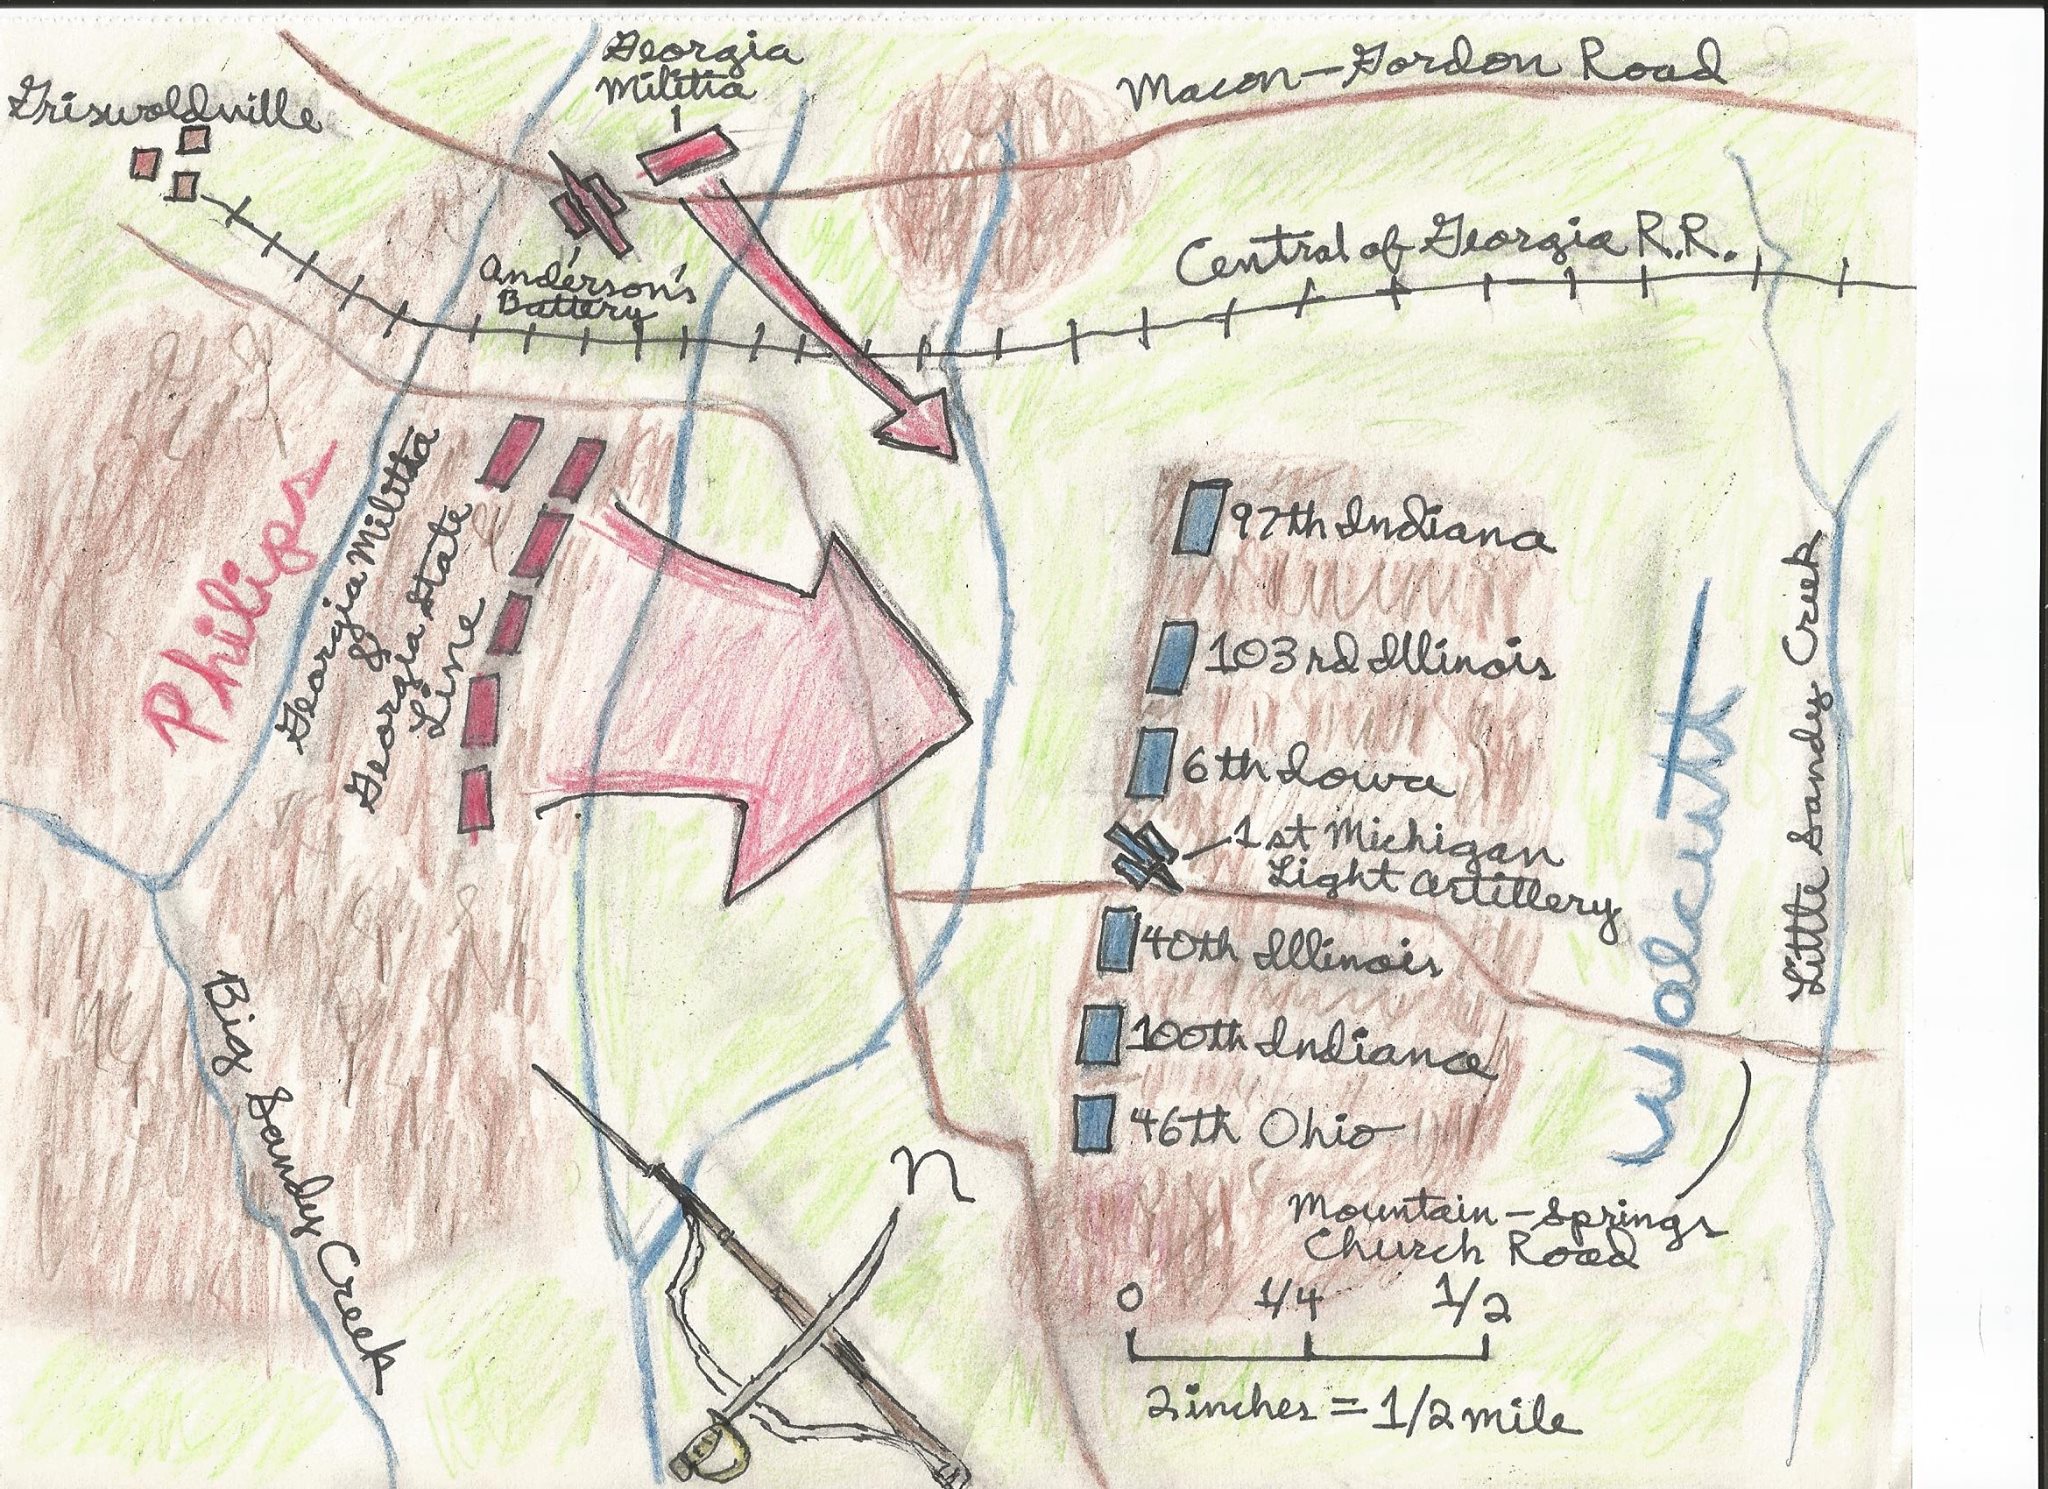 Georgia
Militia
Macon-Gordon Road
Griswoldville
Central of Georgia R.R.
Anderson's
Battery
Philips
Georgia Militia
&
Georgia State
Line
97th Indiana
103rd Illinois
6th Iowa
1st Michigan
Light Artillery
40th Illinois
100th Indiana
46th Ohio
Walcutt
Little Sandy Creek
Big Sandy Creek
N
Mountain-Springs
Church Road
0 1/4 1/2
2 inches = 1/2 mile